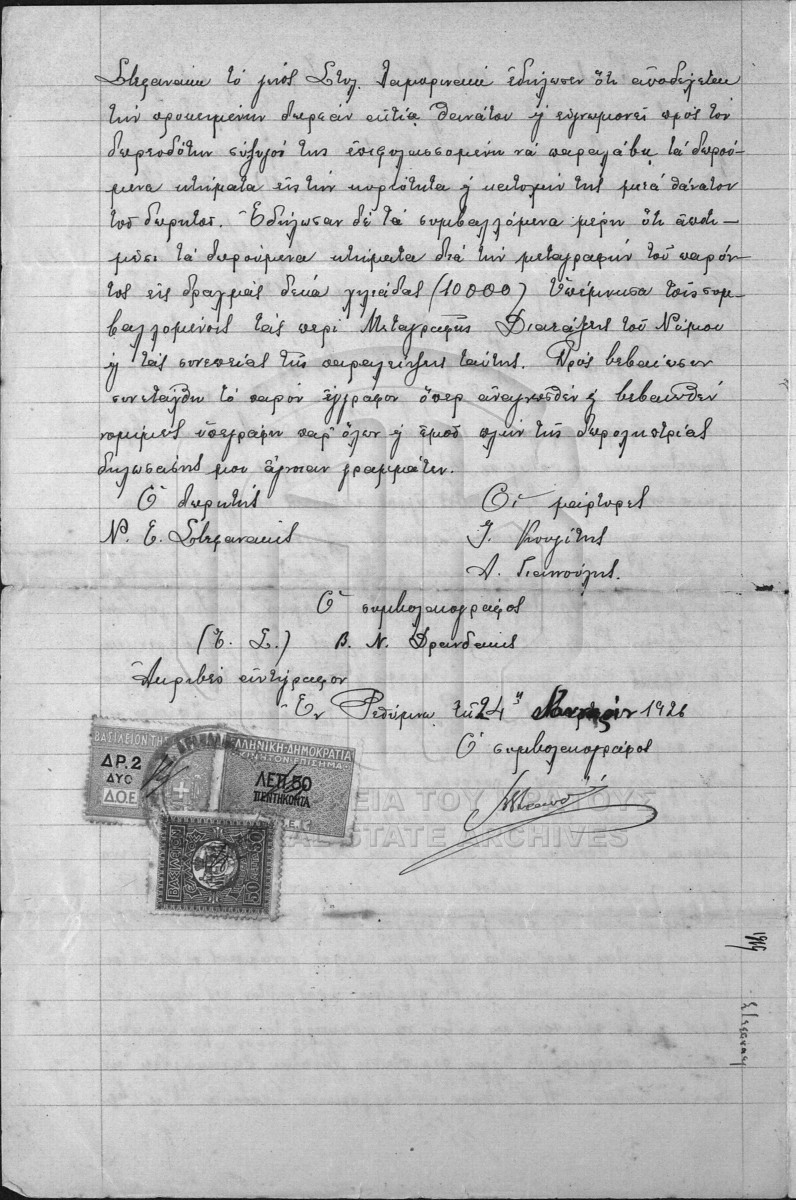 Στεφανάκη τὸ γένος Στυλ. Παμορινακι ἐδήλωσεν ὅτι ἀποδέχεται
τὴν προκειμένην δωρεὰν αἰτίᾳ θανάτου ϗ εὐγνωμονεῖ πρὸς τὸν
δωρεοδότην σύζυγόν της ἐπιφυλασσομένη νὰ παραλάβῃ τὰ δωρού-
μενα κτήματα εἰς τὴν κυριότητα ϗ κατοχήν της μετὰ θάνατον
τοῦ δωρητοῦ. Ἐδήλωσαν δὲ τὰ συμβαλλόμενα μέρη ὅτι ἀποτι-
μῶσι τὰ δωρούμενα κτήματα διὰ τὴν μεταγραφὴν τοῦ παρόν-
τος εἰς δραχμὰς δέκα χιλιάδας (10000) Ὑπέμνησα τοῖς συμ-
βαλλομένοις τὰς περὶ Μεταγραφῆς Διατάξεις τοῦ Νόμου
ϗ τὰς συνεπείας τῆς παραλείψεως ταύτης. Πρὸς βεβαίωσιν
συνετάχθη τὸ παρὸν ἔγγραφον ὅπερ ἀναγνωσθὲν ϗ βεβαιωθὲν
νομίμως ὑπεγράφη παρ' ὅλων ϗ ἐμοῦ πλὴν τῆς δωροληπτρίας
δηλωσάσης μοι ἄγνοιαν γραμμάτων.
Ὁ δωρητὴς Οἱ μάρτυρες
Ν. Ε. Στεφανάκις Ι. Κουλίτης
Α. Γιαννούλης.
Ὁ συμβολαιογράφος
(Τ. Σ.) Β. Ν. Δρανδάκις
Ἀκριβὲς ἀντίγραφον
Ἐν Ρεθύμνῃ τῇ 24ῃ 1926
Ὁ συμβολαιογράφος
ΒΑΣΙΛΕΙΟΝ ΤΗΣ
ΔΡ. 2
ΔΥΟ
Δ.Ο.Ε.
ΕΛΛΗΝΙΚΗ·ΔΗΜΟΚΡΑΤΙΑ
ΛΕΠ 50
ΠΕΝΤΗΚΟΝΤΑ
ΒΑΣΙΛΕΙΟΝ
50 50
ΤΟΥ ΚΡΑΤΟΥΣ
STATE ARCHIVES